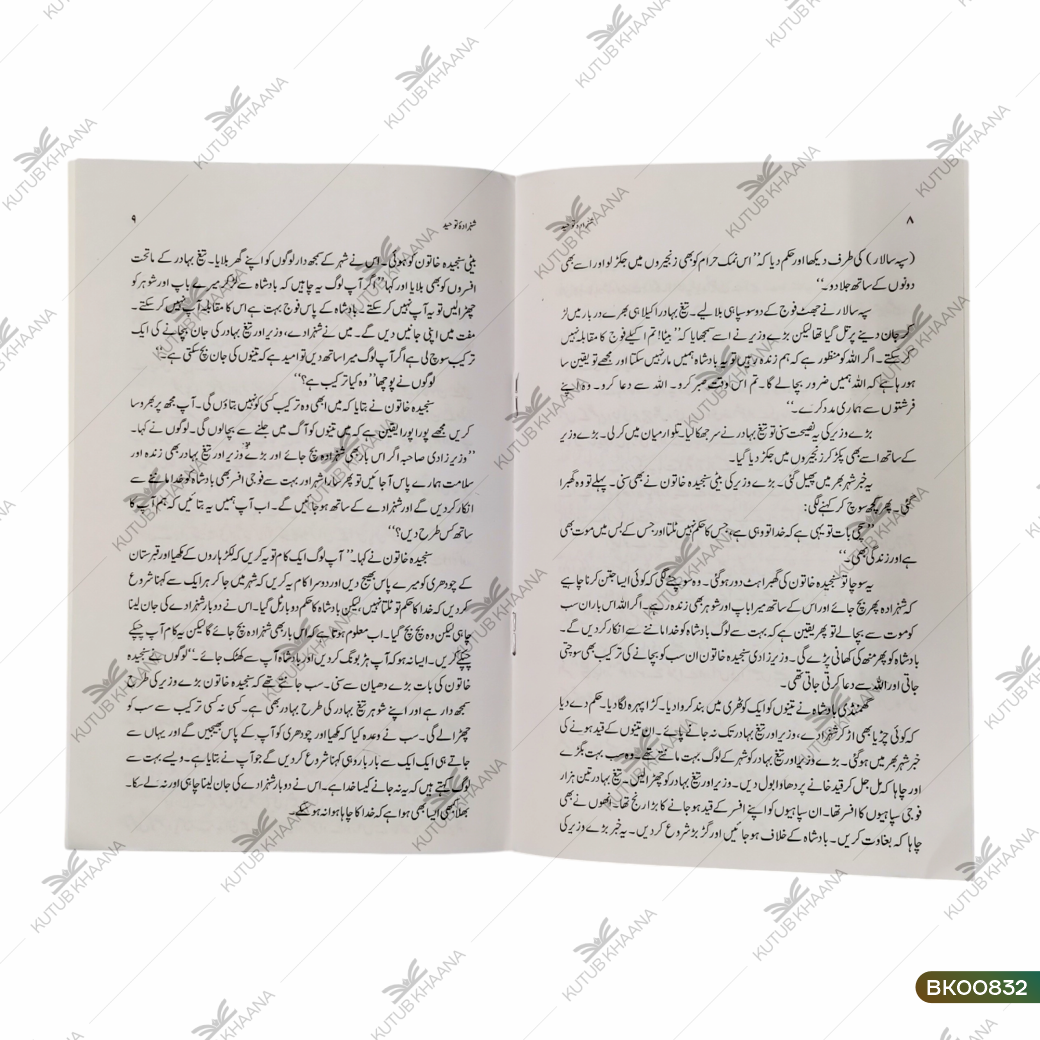 ۸
شہزادۂ توحید
(سپہ سالار) کی طرف دیکھا اور حکم دیا کہ ’’اس نمک حرام کو بھی زنجیروں میں جکڑ لو اور اسے بھی
دونوں کے ساتھ جلا دو۔‘‘
سپہ سالار نے جھٹ فوج کے دو سو سپاہی بلا لیے۔ تیغ بہادر اکیلا ہی بھرے دربار میں لڑ
کر جان دینے پر تل گیا تھا لیکن بڑے وزیر نے اسے سمجھایا کہ ’’بیٹا! تم اکیلے فوج کا مقابلہ نہیں
کر سکتے۔ اگر اللہ کو منظور ہے کہ ہم زندہ رہیں تو یہ بادشاہ ہمیں مار نہیں سکتا اور مجھے تو یقین سا
ہو رہا ہے کہ اللہ ہمیں ضرور بچالے گا۔ تم اس وقت صبر کرو۔ اللہ سے دعا کرو۔ وہ اپنے
فرشتوں سے ہماری مدد کرے۔‘‘
بڑے وزیر کی یہ نصیحت سنی تو تیغ بہادر نے سر جھکا لیا۔ تلوار میان میں کر لی۔ بڑے وزیر
کے ساتھ اسے بھی پکڑ کر زنجیروں میں جکڑ دیا گیا۔
یہ خبر شہر بھر میں پھیل گئی۔ بڑے وزیر کی بیٹی سنجیدہ خاتون نے بھی سنی۔ پہلے تو وہ گھبرا
گئی۔ پھر کچھ سوچ کر کہنے لگی:
’’سچی بات تو یہی ہے کہ خدا تو وہی ہے، جس کا حکم نہیں ٹلتا اور جس کے بس میں موت بھی
ہے اور زندگی بھی۔‘‘
یہ سوچا تو سنجیدہ خاتون کی گھبراہٹ دور ہو گئی۔ وہ سوچنے لگی کہ کوئی ایسا جتن کرنا چاہیے
کہ شہزادہ پھر بچ جائے اور اس کے ساتھ میرا باپ اور شوہر بھی زندہ رہے۔ اگر اللہ اس بار ان سب
کو موت سے بچالے تو پھر یقین ہے کہ بہت سے لوگ بادشاہ کو خدا ماننے سے انکار کر دیں گے۔
بادشاہ کو پھر منھ کی کھانی پڑے گی۔ وزیر زادی سنجیدہ خاتون ان سب کو بچانے کی ترکیب بھی سوچتی
جاتی اور اللہ سے دعا کرتی جاتی تھی۔
گھمنڈی بادشاہ نے تینوں کو ایک کوٹھری میں بند کروا دیا۔ کڑا پہرہ لگا دیا۔ حکم دے دیا
کہ کوئی چڑیا بھی اڑ کر شہزادے، وزیر اور تیغ بہادر تک نہ جانے پائے۔ ان تینوں کے قید ہونے کی
خبر شہر بھر میں ہو گئی۔ بڑے وزیر اور تیغ بہادر کو شہر کے لوگ بہت مانتے تھے۔ وہ سب بہت بگڑے
اور چاہا کہ مل جل کر قید خانے پر دھاوا بول دیں۔ وزیر اور تیغ بہادر کو چھڑا لیں۔ تیغ بہادر تین ہزار
فوجی سپاہیوں کا افسر تھا۔ ان سپاہیوں کو اپنے افسر کے قید ہو جانے کا بڑا رنج تھا۔ انھوں نے بھی
چاہا کہ بغاوت کریں۔ بادشاہ کے خلاف ہو جائیں اور گڑ بڑ شروع کر دیں۔ یہ خبر بڑے وزیر کی
شہزادۂ توحید
۹
بیٹی سنجیدہ خاتون کو ہوئی۔ اس نے شہر کے سمجھ دار لوگوں کو اپنے گھر بلایا۔ تیغ بہادر کے ماتحت
افسروں کو بھی بلایا اور کہا ’’اگر آپ لوگ یہ چاہیں کہ بادشاہ سے لڑ کر میرے باپ اور شوہر کو
چھڑا لیں تو یہ آپ نہیں کر سکتے۔ بادشاہ کے پاس فوج بہت ہے اس کا مقابلہ آپ نہیں کر سکتے۔
مفت میں اپنی جانیں دیں گے۔ میں نے شہزادے، وزیر اور تیغ بہادر کی جان بچانے کی ایک
ترکیب سوچ لی ہے اگر آپ لوگ میرا ساتھ دیں تو امید ہے کہ تینوں کی جان بچ سکتی ہے۔‘‘
لوگوں نے پوچھا ’’وہ کیا ترکیب ہے؟‘‘
سنجیدہ خاتون نے بتایا کہ میں ابھی وہ ترکیب کسی کو نہیں بتاؤں گی۔ آپ مجھ پر بھروسا
کریں مجھے پورا پورا یقین ہے کہ میں تینوں کو آگ میں جلنے سے بچا لوں گی۔ لوگوں نے کہا۔
’’وزیر زادی صاحبہ اگر اس بار بھی شہزادہ بچ جائے اور بڑے وزیر اور تیغ بہادر بھی زندہ اور
سلامت ہمارے پاس آ جائیں تو پھر سارا شہر اور بہت سے فوجی افسر بھی بادشاہ کو خدا ماننے سے
انکار کر دیں گے اور شہزادے کے ساتھ ہو جائیں گے۔ اب آپ ہمیں یہ بتائیں کہ ہم آپ کا
ساتھ کس طرح دیں؟‘‘
سنجیدہ خاتون نے کہا۔ ’’آپ لوگ ایک کام تو یہ کریں کہ لکڑ ہاروں کے مکھیا اور قبرستان
کے چودھری کو میرے پاس بھیج دیں اور دوسرا کام یہ کریں کہ شہر میں جا کر ہر ایک سے کہنا شروع
کر دیں کہ خدا کا حکم تو ٹلتا نہیں، لیکن بادشاہ کا حکم دو بار ٹل گیا۔ اس نے دو بار شہزادے کی جان لینا
چاہی لیکن وہ بچ بچ گیا۔ اب معلوم ہوتا ہے کہ اس بار بھی شہزادہ بچ جائے گا لیکن یہ کام آپ چپکے
چپکے کریں۔ ایسا نہ ہو کہ آپ ہڑبونگ کر دیں اور بادشاہ آپ سے کھٹک جائے۔‘‘ لوگوں نے سنجیدہ
خاتون کی بات بڑے دھیان سے سنی۔ سب جانتے تھے کہ سنجیدہ خاتون بڑے وزیر کی طرح
سمجھ دار ہے اور اپنے شوہر تیغ بہادر کی طرح بہادر بھی ہے۔ کسی نہ کسی ترکیب سے سب کو
چھڑا لے گی۔ سب نے وعدہ کیا کہ مکھیا اور چودھری کو آپ کے پاس بھیجیں گے اور یہاں سے
جاتے ہی ایک ایک سے بار بار وہی کہنا شروع کر دیں گے جو آپ نے بتایا ہے۔ ویسے بہت سے
لوگ کہتے ہیں کہ یہ نہ جانے کیسا خدا ہے۔ اس نے دو بار شہزادے کی جان لینا چاہی اور نہ لے سکا۔
بھلا کبھی ایسا بھی ہوا ہے کہ خدا کا چاہا ہوا نہ ہو سکے۔
KUTUB KHAANA
BK00832